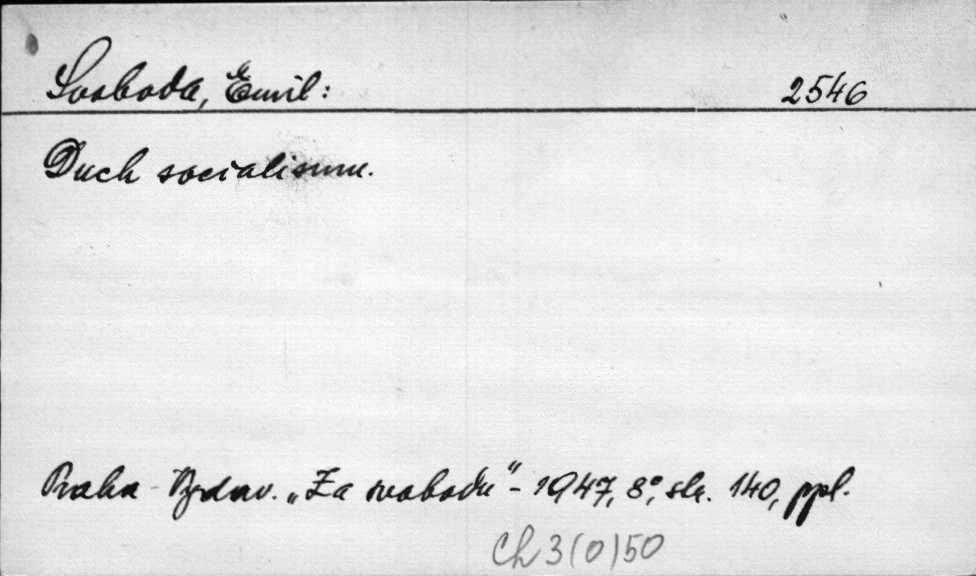 Svoboda, Emil: 2546
Duch socialismu.
Praha - Vydav. „Za svobodu" - 1947, 8°, str. 140, ppl.
Ch 3(0)50